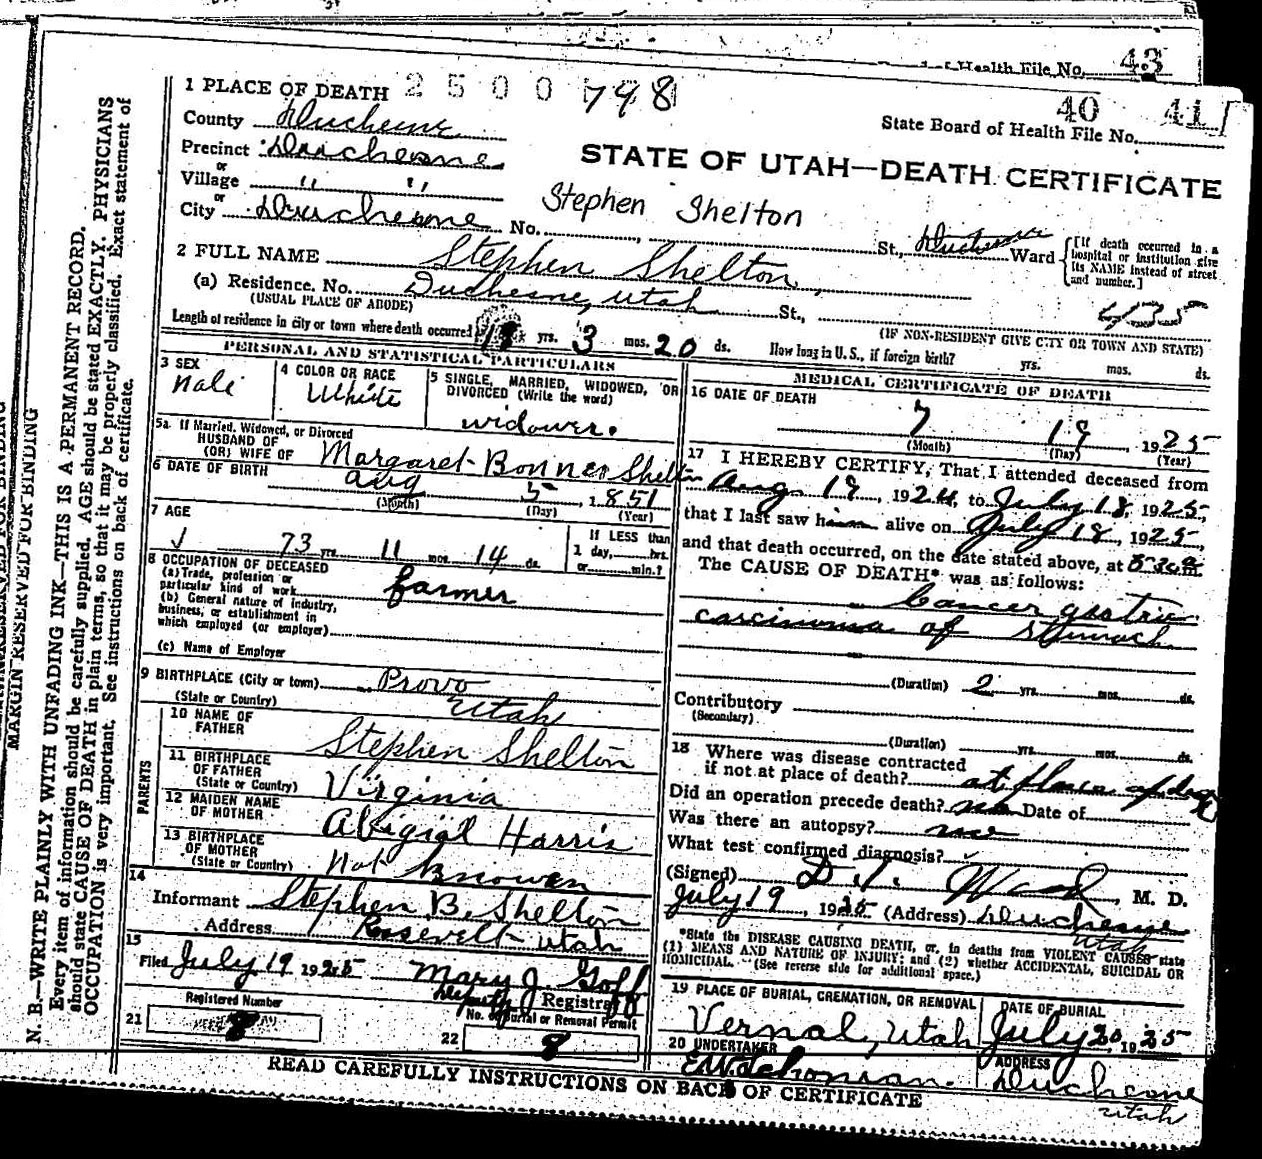 43
of Health File No.
1 PLACE OF DEATH 2500 798
40 41
State Board of Health File No.
County Duchesne
Precinct Duchesne
or
Village " "
or
City Duchesne No. St., Duchesne Ward
STATE OF UTAH—DEATH CERTIFICATE
Stephen Shelton
[If death occurred in a
hospital or institution give
its NAME instead of street
and number.]
2 FULL NAME Stephen Shelton
(a) Residence. No. Duchesne, Utah St.,
(USUAL PLACE OF ABODE)
435
(IF NON-RESIDENT GIVE CITY OR TOWN AND STATE)
Length of residence in city or town where death occurred 18 yrs. 3 mos. 20 ds. How long in U. S., if foreign birth? yrs. mos. ds.
PERSONAL AND STATISTICAL PARTICULARS
3 SEX
Male
4 COLOR OR RACE
White
5 SINGLE, MARRIED, WIDOWED, OR
DIVORCED (Write the word)
widower.
5a If Married, Widowed, or Divorced
HUSBAND OF
(OR) WIFE OF Margaret Bonner Shelton
6 DATE OF BIRTH Aug 5 1851
(Month) (Day) (Year)
7 AGE
73 yrs. 11 mos. 14 ds.
If LESS than
1 day, hrs.
or min.?
8 OCCUPATION OF DECEASED
(a) Trade, profession or
particular kind of work farmer
(b) General nature of industry,
business, or establishment in
which employed (or employer)
(c) Name of Employer
9 BIRTHPLACE (City or town) Provo
(State or Country) Utah
PARENTS
10 NAME OF
FATHER Stephen Shelton
11 BIRTHPLACE
OF FATHER
(State or Country) Virginia
12 MAIDEN NAME
OF MOTHER Abigial Harris
13 BIRTHPLACE
OF MOTHER
(State or Country) Not Knowen
14
Informant Stephen B. Shelton
Address Roosevelt Utah
15
Filed July 19 1925 Mary J. Goff
Deputy Registrar
Registered Number
21 8
No. of Burial or Removal Permit
22 8
MEDICAL CERTIFICATE OF DEATH
16 DATE OF DEATH
7 19 1925
(Month) (Day) (Year)
17 I HEREBY CERTIFY, That I attended deceased from
Aug 19, 1924, to July 18, 1925,
that I last saw him alive on July 18, 1925,
and that death occurred, on the date stated above, at
The CAUSE OF DEATH* was as follows:
Cancer gastric
carcinoma of stomach
(Duration) 2 yrs. mos. ds.
Contributory
(Secondary)
(Duration) yrs. mos. ds.
18 Where was disease contracted
if not at place of death? at place of death
Did an operation precede death? no Date of
Was there an autopsy? no
What test confirmed diagnosis?
(Signed) M. D.
July 19, 1925 (Address) Duchesne
Utah
*State the DISEASE CAUSING DEATH, or, in deaths from VIOLENT CAUSES state
(1) MEANS AND NATURE OF INJURY; and (2) whether ACCIDENTAL, SUICIDAL OR
HOMICIDAL. (See reverse side for additional space.)
19 PLACE OF BURIAL, CREMATION, OR REMOVAL
Vernal, Utah
DATE OF BURIAL
July 20, 1925
20 UNDERTAKER
ADDRESS
Duchesne
Utah
READ CAREFULLY INSTRUCTIONS ON BACK OF CERTIFICATE
MARGIN RESERVED FOR BINDING
N. B.—WRITE PLAINLY WITH UNFADING INK—THIS IS A PERMANENT RECORD.
Every item of information should be carefully supplied. AGE should be stated EXACTLY. PHYSICIANS
should state CAUSE OF DEATH in plain terms, so that it may be properly classified. Exact statement of
OCCUPATION is very important. See instructions on back of certificate.